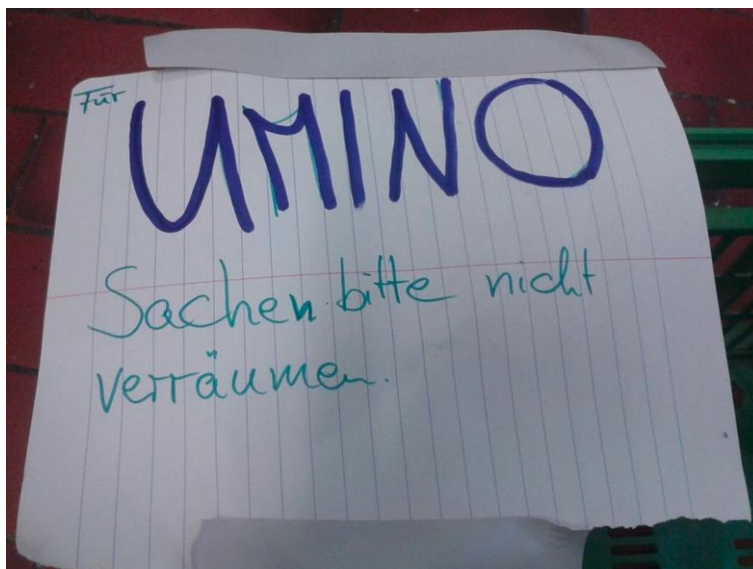 Für
UMINO
Sachen bitte nicht
verräumen.